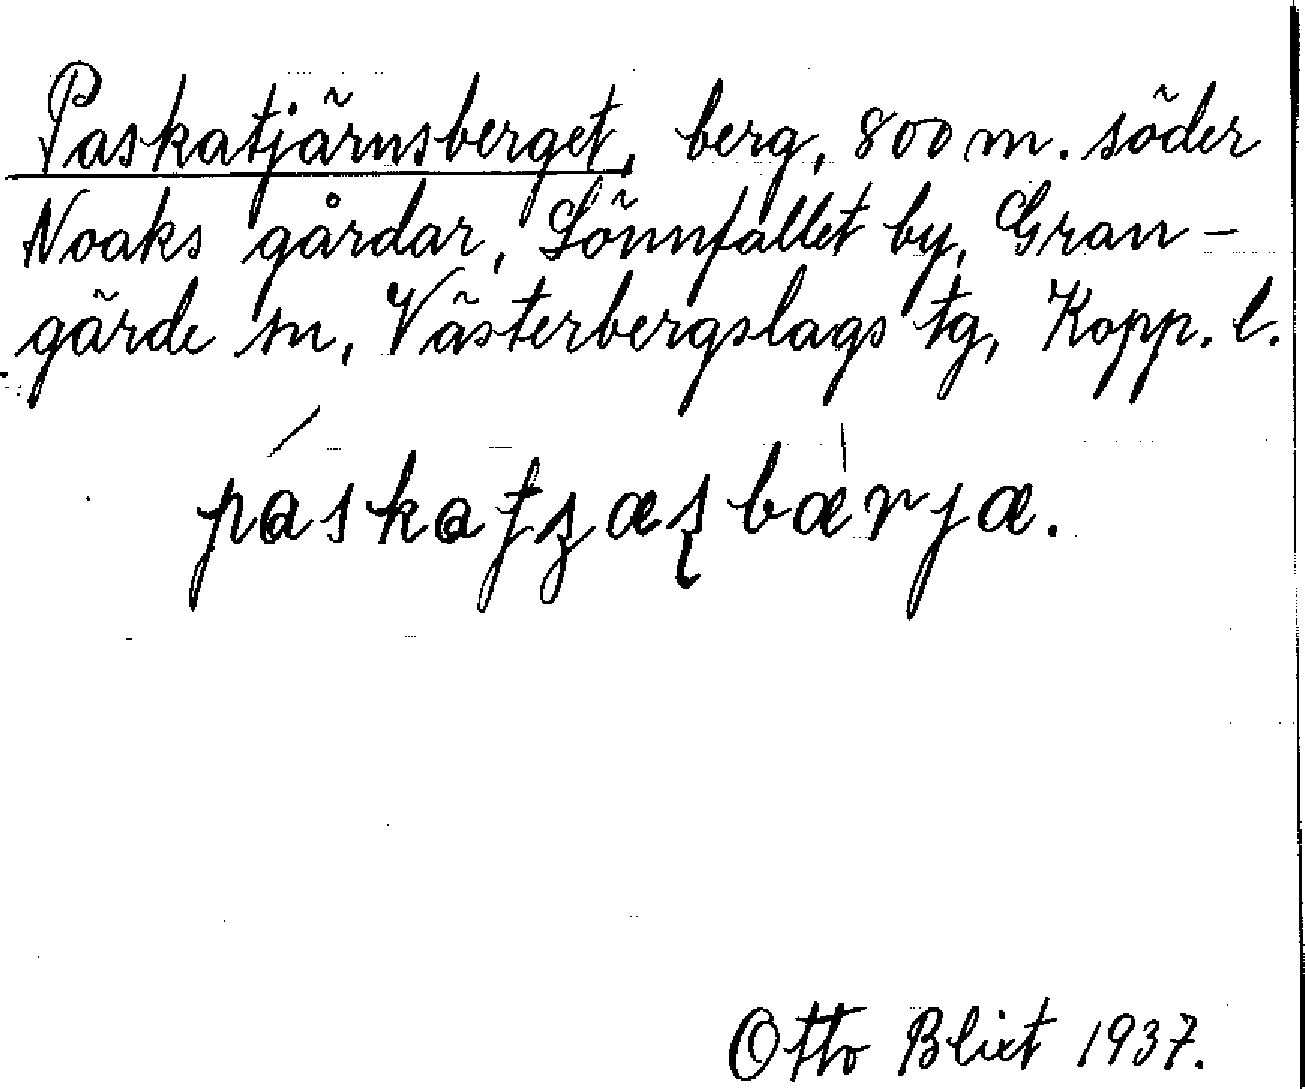 Paskatjärnsberget, berg, 800 m. söder
Noaks gårdar, Sönnfallet by, Gran-
gärde sn, Västerbergslags tg, Kopp. l.
páskatʒæʂbærjæ.
Otto Blixt 1937.